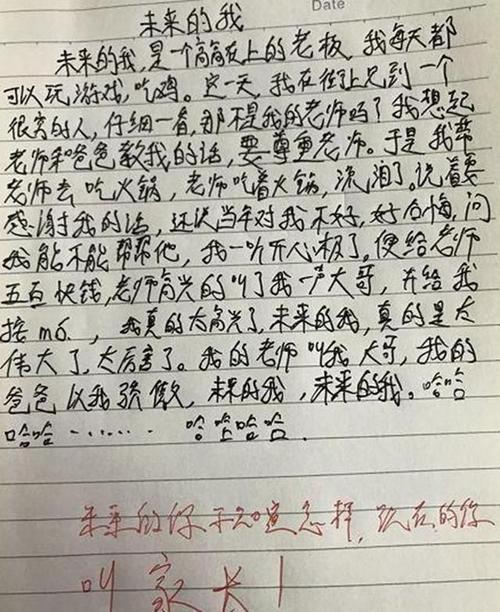 未来的我
Date
未来的我,是一个高高在上的老板,我每天都
可以玩游戏,吃鸡。这一天,我在街上见到一个
很穷的人,仔细一看,那不是我的老师吗?我想起
老师和爸爸教我的话,要尊重老师。于是我带
老师去吃火锅,老师吃着火锅,流泪了。说着要
感谢我的话,还说当年对我不好,好后悔,问
我能不能帮帮他,我一听开心极了。便给老师
五百块钱,老师高兴的叫了我一声大哥,并给我
接m6.,我真的太高兴了,未来的我,真的是太
伟大了,太厉害了。我的老师叫我大哥,我的
爸爸以我骄傲,未来的我,未来的我。哈哈
哈哈...... 哈哈哈哈.
未来的你不知道怎样,现在的你
叫家长!